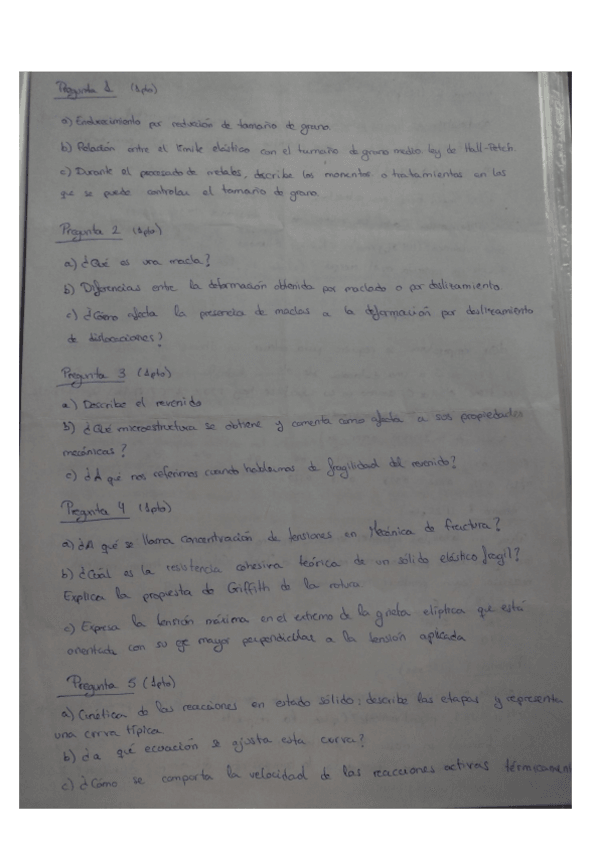 Pregunta 1 (1pto)
a) Endurecimiento por reducción de tamaño de grano.
b) Relación entre el límite elástico con el tamaño de grano medio ley de Hall-Petch.
c) Durante el procesado de metales, describe los momentos o tratamientos en los
que se puede controlar el tamaño de grano.
Pregunta 2 (1pto)
a) ¿Qué es una macla?
b) Diferencias entre la deformación obtenida por maclado o por deslizamiento.
c) ¿Cómo afecta la presencia de maclas a la deformación por deslizamiento
de dislocaciones?
Pregunta 3 (1pto)
a) Describe el revenido
b) ¿Qué microestructura se obtiene y comenta como afecta a sus propiedades
mecánicas?
c) ¿A qué nos referimos cuando hablamos de fragilidad del revenido?
Pregunta 4 (1pto)
a) ¿A qué se llama concentración de tensiones en Mecánica de fractura?
b) ¿Cuál es la resistencia cohesiva teórica de un sólido elástico frágil?
Explica la propuesta de Griffith de la rotura
c) Expresa la tensión máxima en el extremo de la grieta elíptica que está
orientada con su eje mayor perpendicular a la tensión aplicada
Pregunta 5 (1pto)
a) Cinética de las reacciones en estado sólido; describe las etapas y representa
una curva típica
b) ¿a qué ecuación se ajusta esta curva?
c) ¿Cómo se comporta la velocidad de las reacciones activas